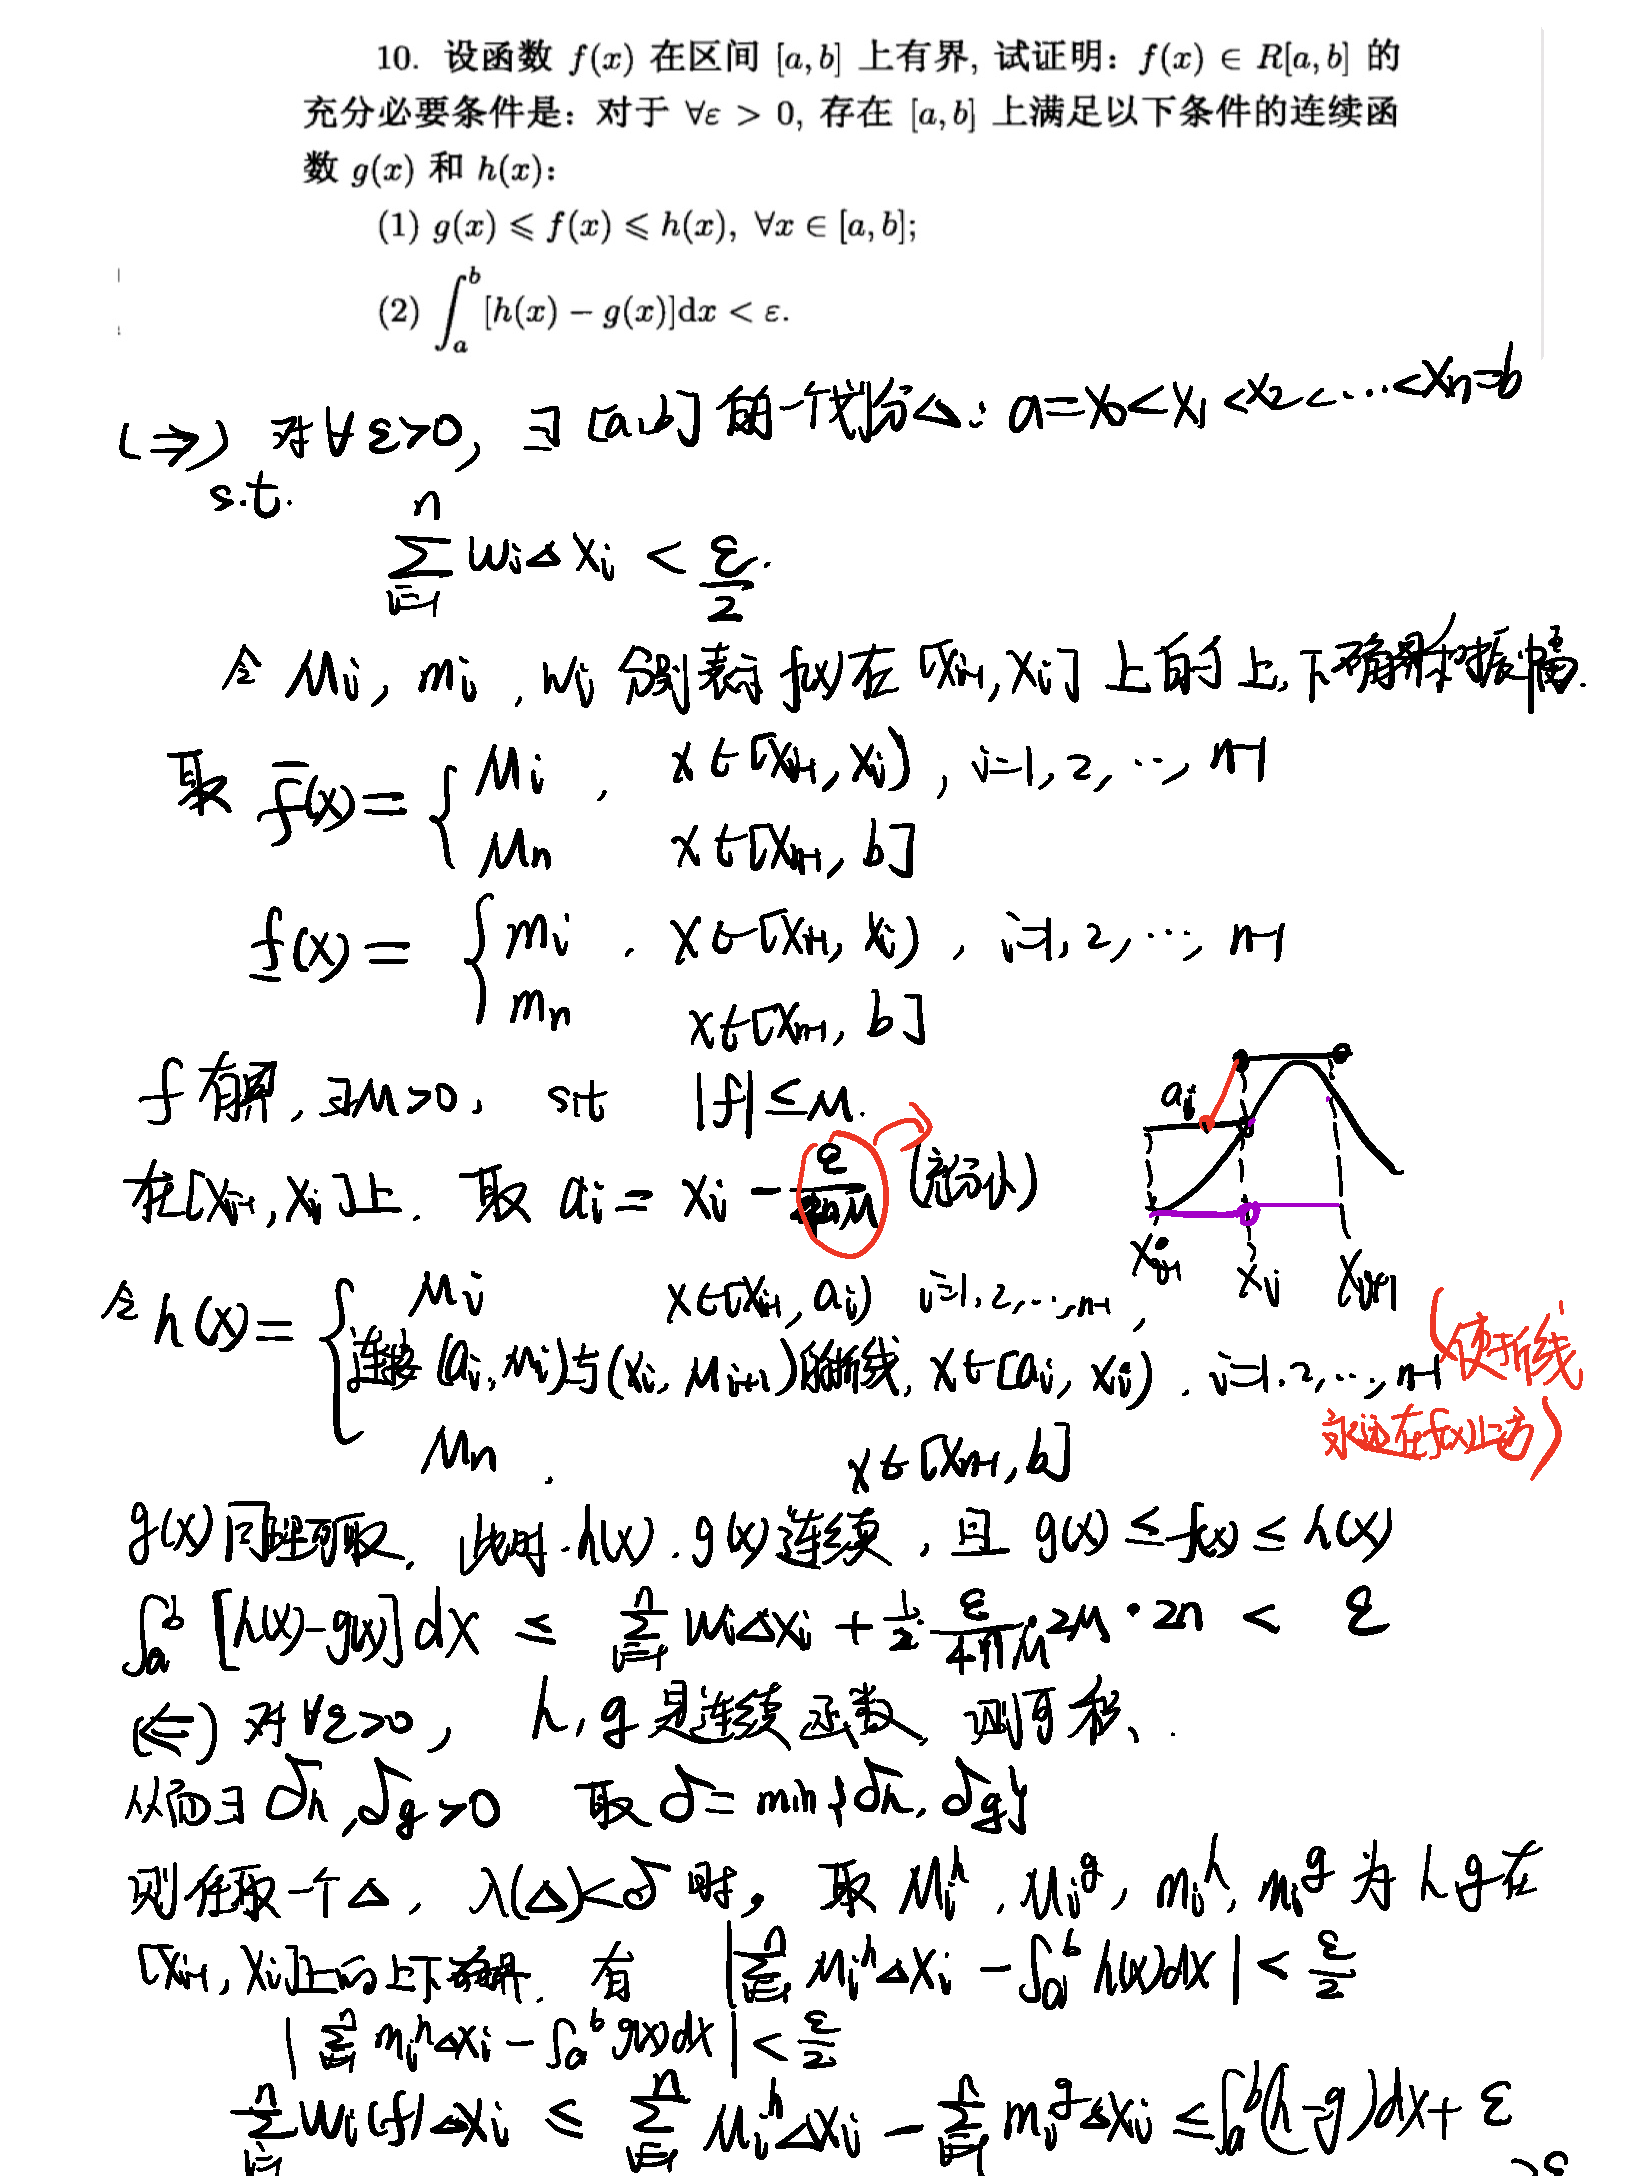 10. 设函数 f(x) 在区间 [a, b] 上有界, 试证明: f(x) ∈ R[a, b] 的
充分必要条件是: 对于 ∀ε > 0, 存在 [a, b] 上满足以下条件的连续函
数 g(x) 和 h(x):
(1) g(x) ⩽ f(x) ⩽ h(x), ∀x ∈ [a, b];
(2) ∫_a^b [h(x) − g(x)]dx < ε.
(⇒) 对∀ε>0, ∃ [a,b] 的一个划分△: a=x₀<x₁<x₂<…<xₙ=b
s.t.
∑_{i=1}^n wᵢ△xᵢ < ε/2.
令 Mᵢ, mᵢ, wᵢ 分别表示 f(x) 在 [xᵢ₋₁, xᵢ] 上的上,下确界和振幅.
取 f̄(x) = { Mᵢ, x∈[xᵢ₋₁, xᵢ), i=1, 2, …, n-1
Mₙ x∈[xₙ₋₁, b]
f̲(x) = { mᵢ, x∈[xᵢ₋₁, xᵢ), i=1, 2, …, n-1
mₙ x∈[xₙ₋₁, b]
f 有界, ∃M>0, s.t |f|≤M.
在[xᵢ₋₁, xᵢ]上. 取 aᵢ = xᵢ - ε/4nM (充分小)
aᵢ
xᵢ₋₁ xᵢ xᵢ₊₁
令 h(x) = { Mᵢ x∈[xᵢ₋₁, aᵢ) i=1, 2, …, n-1,
连接 (aᵢ, Mᵢ)与(xᵢ, Mᵢ₊₁)的折线, x∈[aᵢ, xᵢ). i=1, 2, …, n-1
(使折线
永远在f(x)上方)
Mₙ. x∈[xₙ₋₁, b]
g(x) 同理可取. 此时. h(x). g(x) 连续, 且 g(x) ≤ f(x) ≤ h(x)
∫_a^b [h(x)-g(x)] dx ≤ ∑_{i=1}^n wᵢ△xᵢ + 1/2 · ε/4nM · 2M · 2n < ε
(⇐) 对∀ε>0, h, g 是连续函数, 则可积、.
从而∃ δₕ, δ_g >0 取 δ = min{δₕ, δ_g}
则任取一个△, λ(△)<δ 时, 取 Mᵢʰ, Mᵢᵍ, mᵢʰ, mᵢᵍ 为 h g 在
[xᵢ₋₁, xᵢ]上的上下确界. 有 |∑_{i=1}^n Mᵢʰ△xᵢ - ∫_a^b h(x)dx| < ε/2
|∑_{i=1}^n mᵢʰ△xᵢ - ∫_a^b g(x)dx| < ε/2
∑_{i=1}^n wᵢ(f)△xᵢ ≤ ∑_{i=1}^n Mᵢʰ△xᵢ - ∑_{i=1}^n mᵢᵍ△xᵢ ≤ ∫_a^b (h-g)dx + ε